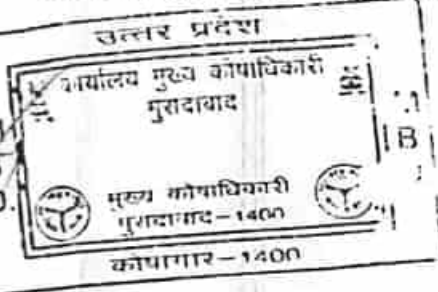 उत्तर प्रदेश
कार्यालय मुख्य कोषाधिकारी
मुरादाबाद
B
मुख्य कोषाधिकारी
मुरादाबाद-1400
कोषागार-1400